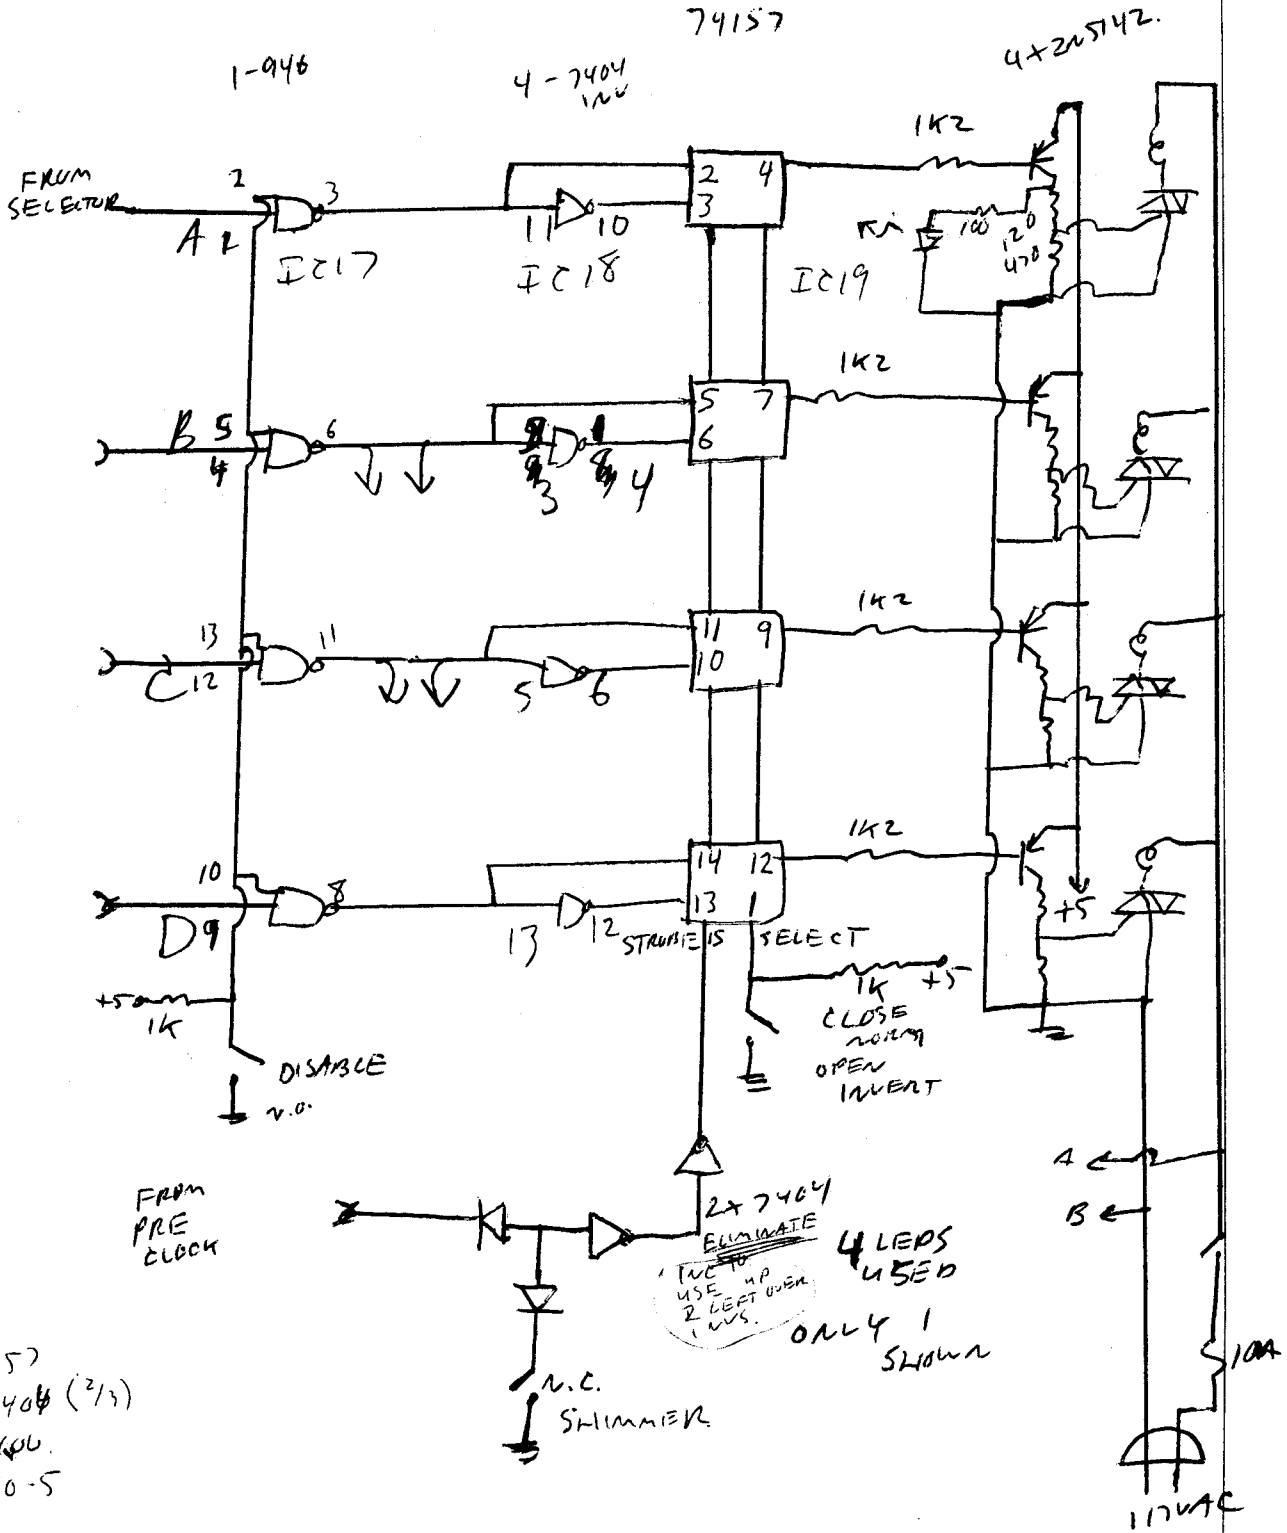 74157
4x2N5142.
1-946
4-7404
INV
1K2
FROM
SELECTOR
2
3
A 1
IC17
11
10
IC18
2 4
3
IC19
100
120
470
1K2
B 5
4
6
3
4
5 7
6
1K2
13
11
C 12
5
6
11 9
10
1K2
10
8
D 9
13
12
14 12
13 1
STROBE 15
SELECT
+5
1K
+5
1K
+5
CLOSE
NORM
OPEN
INVERT
DISABLE
N.O.
A
B
FROM
PRE
CLOCK
2x7404
ELIMINATE
INC TO
USE UP
2 LEFT OVER
INVS.
4 LEDS
USED
ONLY 1
SHOWN
N.C.
SHIMMER
10A
57
404 (2/3)
0-5
117VAC